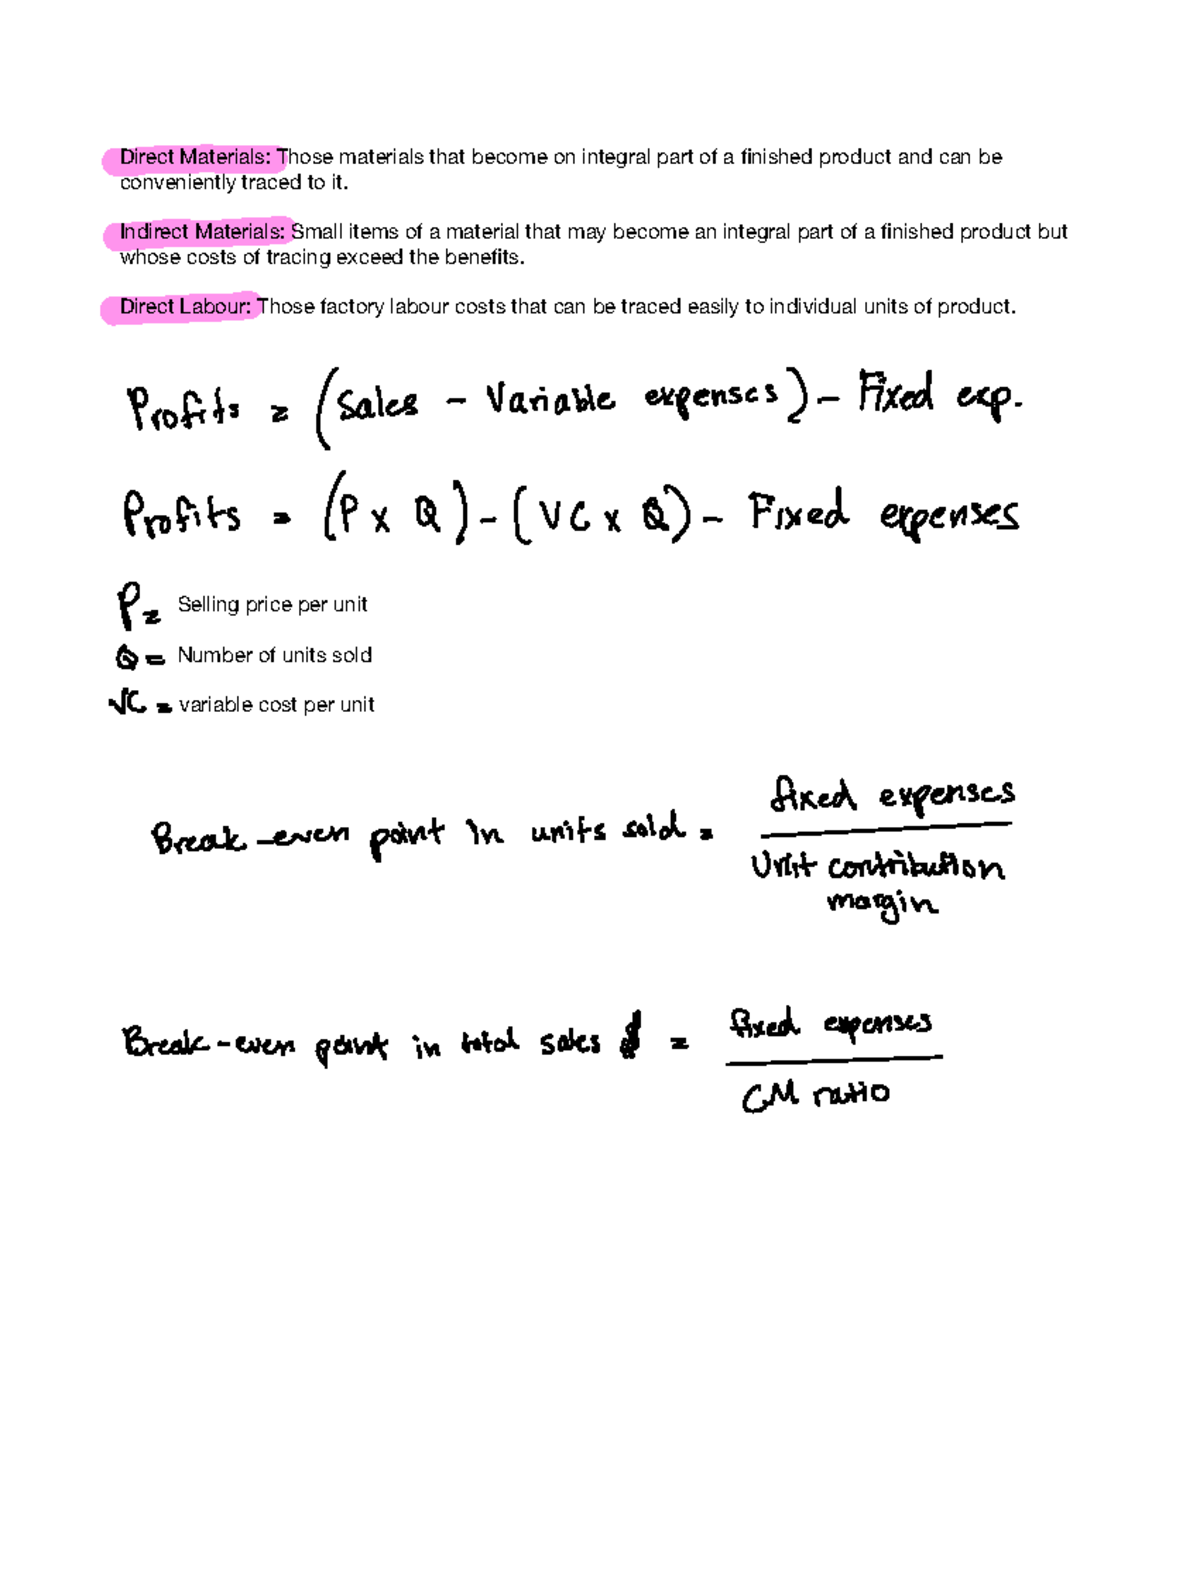 Direct Materials: Those materials that become on integral part of a finished product and can be
conveniently traced to it.
Indirect Materials: Small items of a material that may become an integral part of a finished product but
whose costs of tracing exceed the benefits.
Direct Labour: Those factory labour costs that can be traced easily to individual units of product.
Profits = (Sales - Variable expenses) - Fixed exp.
Profits = (P x Q) - (VC x Q) - Fixed expenses
P = Selling price per unit
Q = Number of units sold
VC = variable cost per unit
Break-even point in units sold = fixed expenses
Unit contribution
margin
Break-even point in total sales $ = fixed expenses
CM ratio